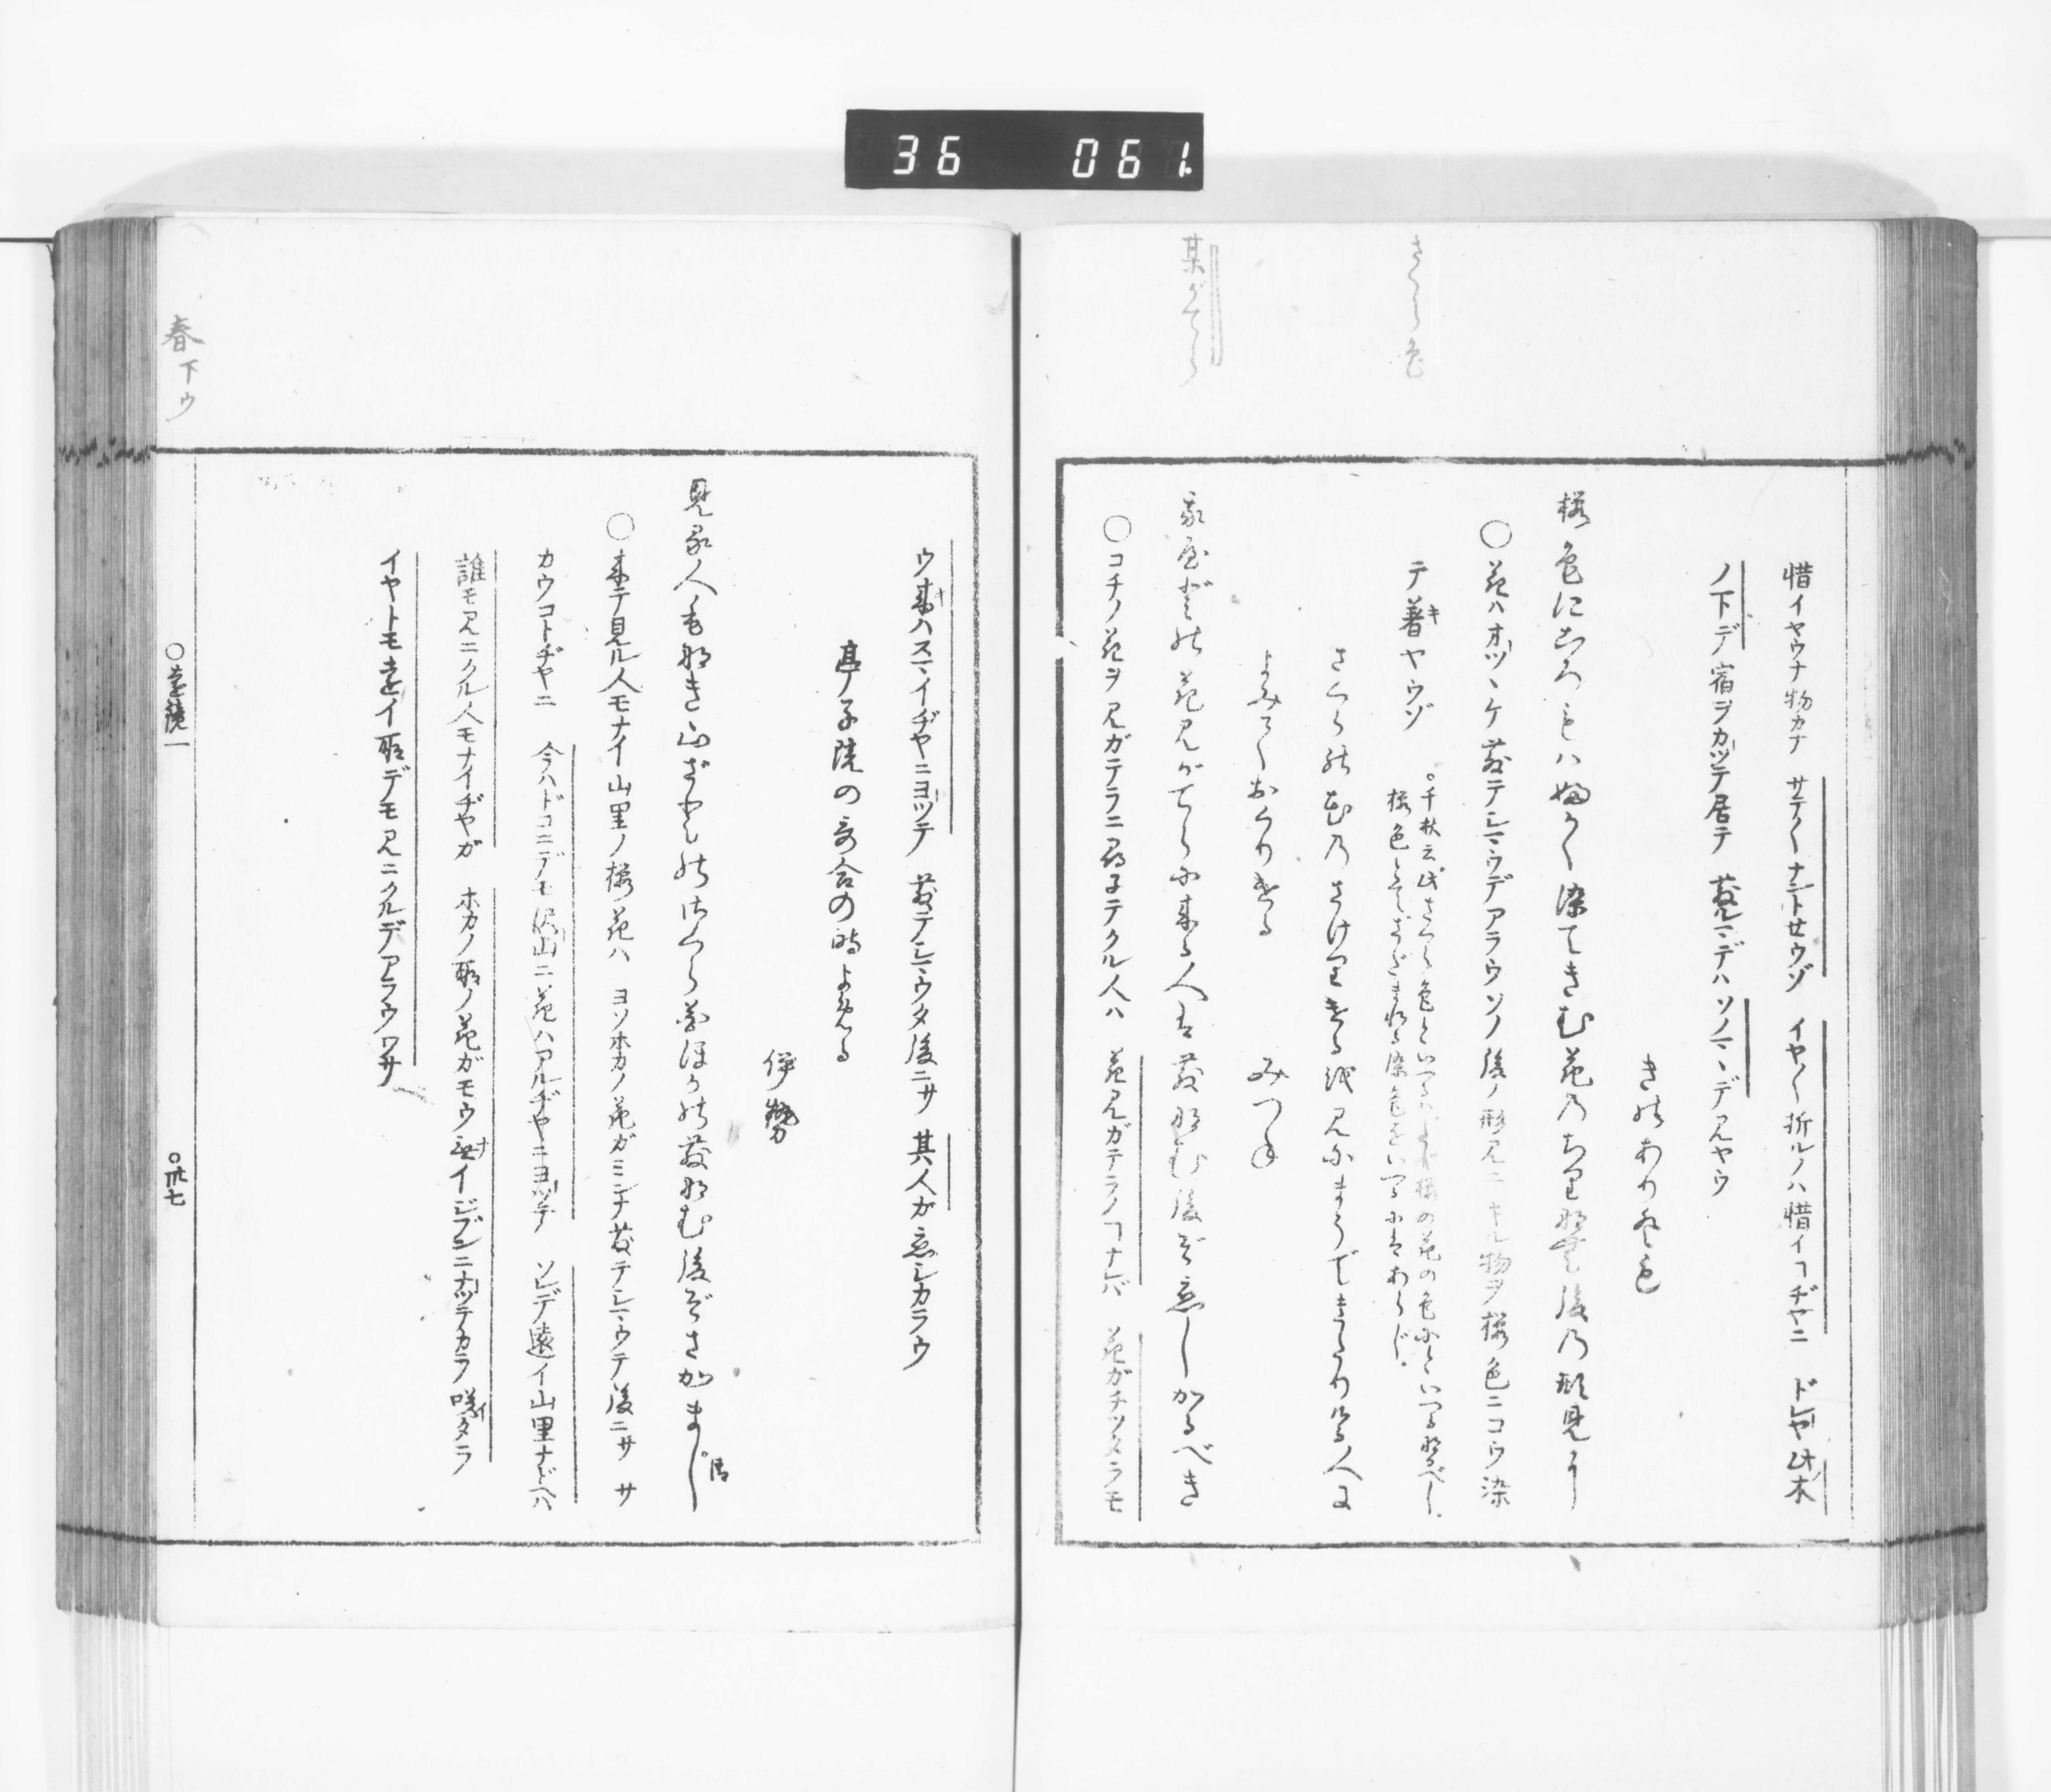 36 061
さくら色
某がてら
惜イヤウナ物カナ サテ〱ナントセウゾ イヤ〱折ルノハ惜イヿヂヤニ ドレヤ此木
ノ下デ宿ヲカツテ居テ 散ルマデハソノマヽデ見ヤウ
きのありとも
桜色にころもハ婦かく染てきむ花乃ちり那む後乃形見に
○花ハオツヽケ散テシマウデアラウソノ後ノ形見ニキル物ヲ桜色ニコウ染
テ著キヤウゾ
○千秋云此さくら色といへるハたゞ桜の花の色にといへる那るべし
桜色とてさだまれる染色をいへるにはあらじ
さくら能花乃さけりける越見にまうできたりける人に
よみておくりける みつね
我屋ど能花見がてらに来る人は散那む後ぞ恋しかるべき
○コチノ花ヲ見ガテラニ尋子テクル人ハ 花見ガテラノヿナレバ 花ガチツタラモ
ウ来キハスマイヂヤニヨツテ 散テシマウタ後ニサ 其人ガ恋シカラウ
亭子院の哥合の時よめる
伊勢
見る人も那き山ざと能さくら花ほか能散那む後ぞさかまし
○来テ見ル人モナイ山里ノ桜花ハ ヨソホカノ花ガミンナ散テシマウテ後ニサ サ
カウコトヂヤニ 今ハドコニデモ沢山ニ花ハアルヂヤニヨツテ ソレデ遠イ山里ナドヘハ
誰モ見ニクル人モナイヂヤガ ホカノ所ノ花ガモウ無ナイジブンニナツテカラ咲イタラ
イヤトモ遠イ所デモ見ニクルデアラウワサ
春下ウ
○遠鏡一
○卅七